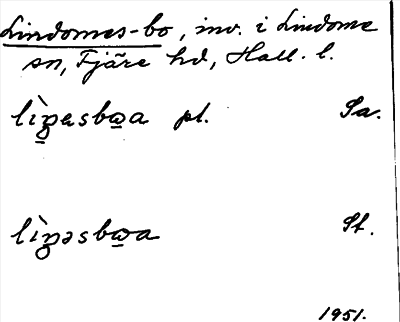 Lindomes-bo, inv. i Lindome
sn, Fjäre hd, Hall. l.
lìn̠esbω̠a pl. Sa.
lìn̠əsbω̠a St.
1951.